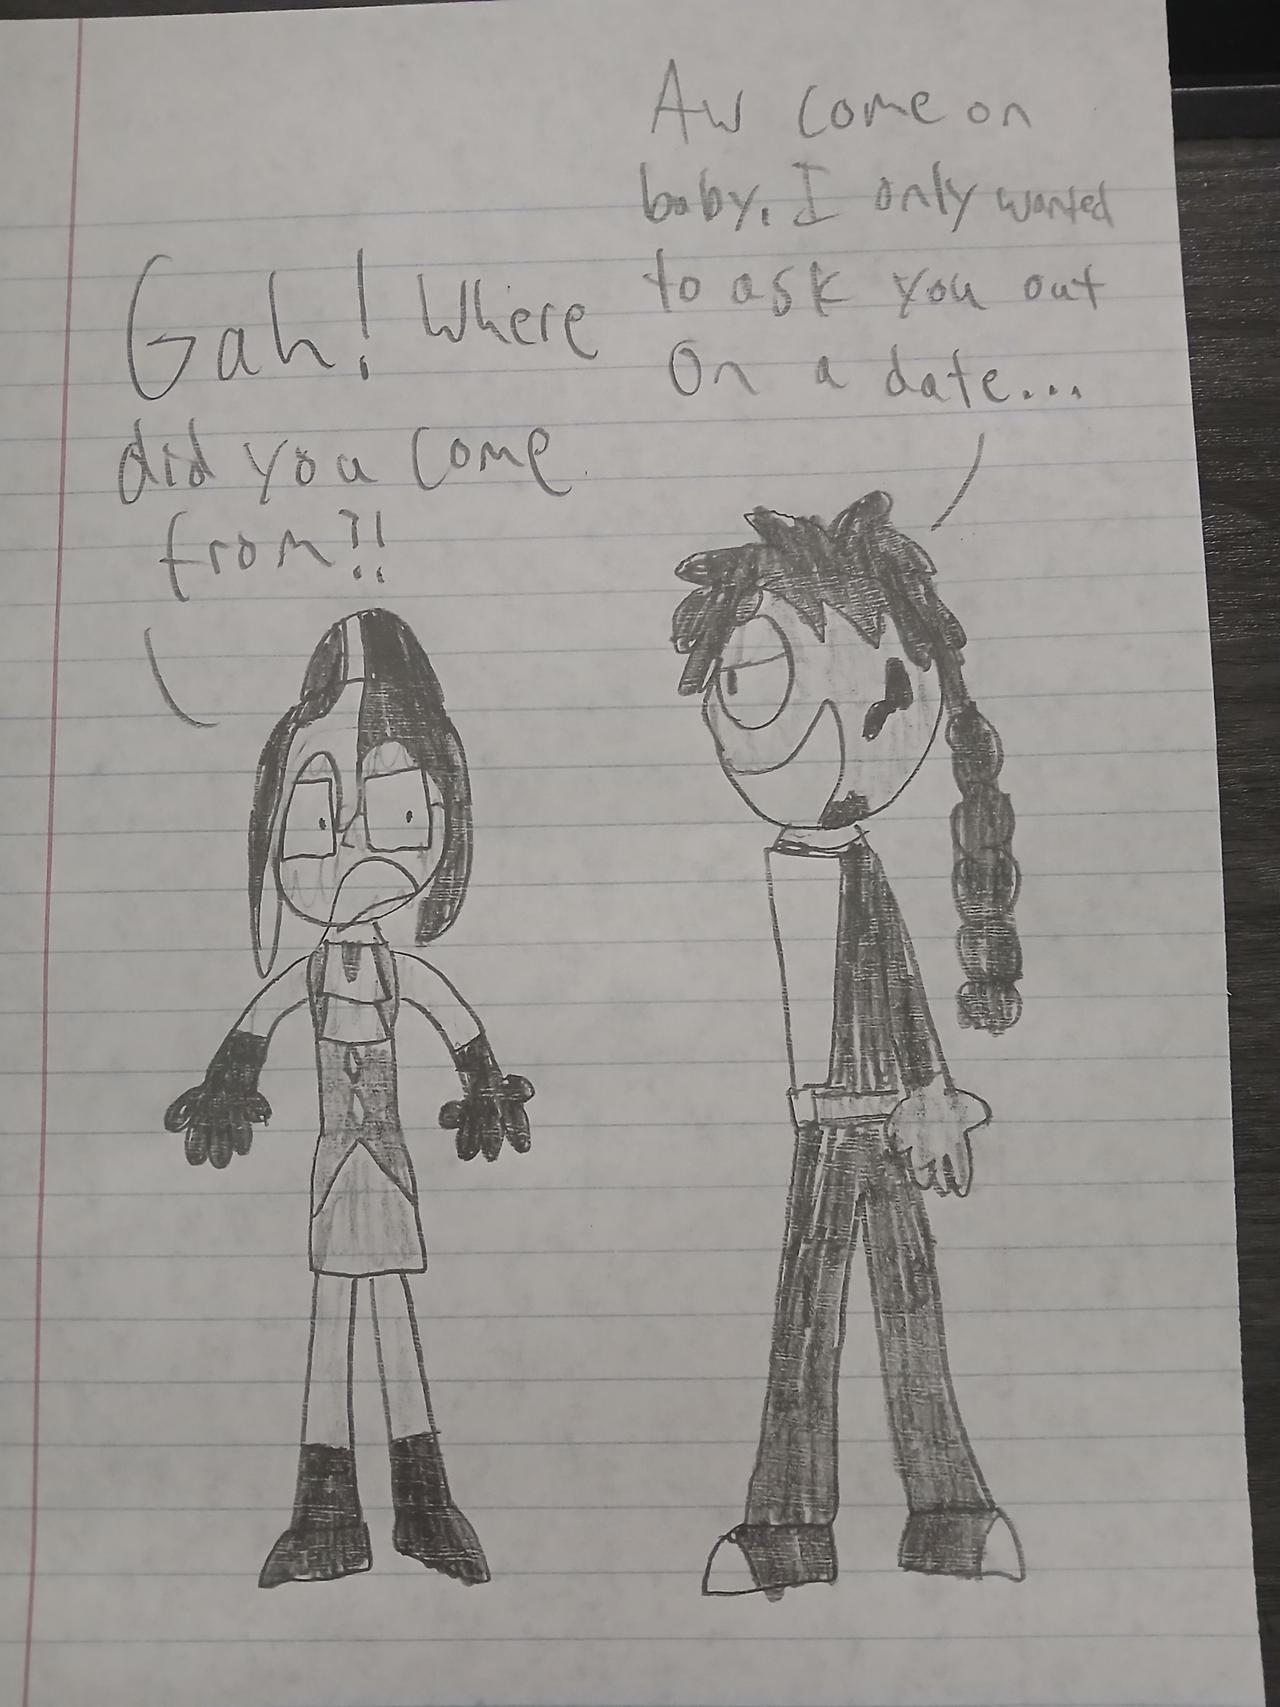 Gah! Where
did you come
from?!!
Aw come on
baby. I only wanted
to ask you out
on a date...